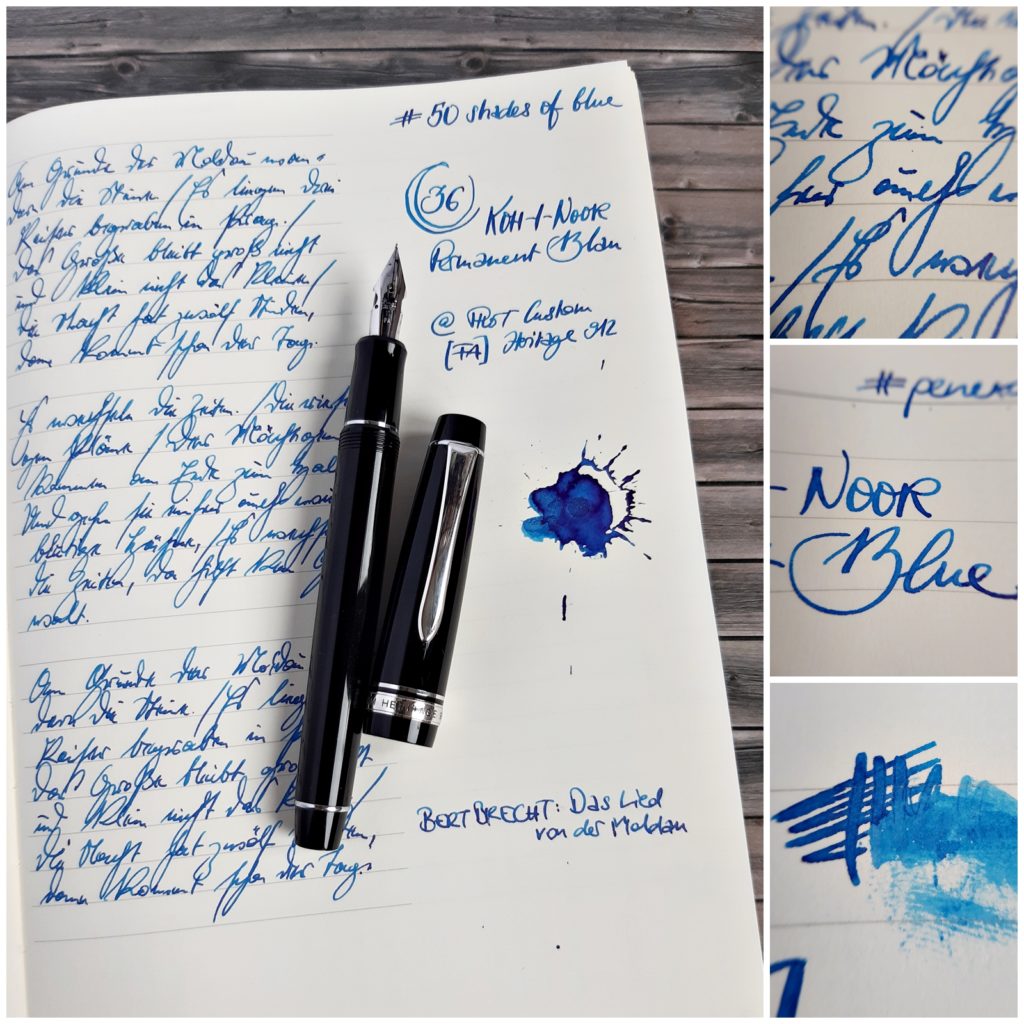 Am Grunde der Moldau wan-
dern die Steine / Es liegen drei
Kaiser begraben in Prag. /
das Große bleibt groß nicht
und klein nicht das Kleine /
die Nacht hat zwölf Stunden,
dann kommt schon der Tag.
Es wechseln die Zeiten. / Die riesi-
gen Pläne / der Mächtigen
kommen am Ende zum Hal
Und gehen sie einher auch wie
blutige Hähne, / Es wechsel
die Zeiten, da hilft kein G
walt.
Am Grunde der Moldau
dern die Steine. / Es lieg
Kaiser begraben in
das Große bleibt groß
und klein nicht das
die Nacht hat zwölf
dann kommt schon der Tag.
# 50 shades of blue
36
KOH-I-NOOR
Permanent Blau
@ Custom
[FA] Heritage 912
HERITAGE
BERT BRECHT: Das Lied
von der Moldau
der Mächtig
Ende zum
her auch w
/ Es wechs
NOOR
Blue